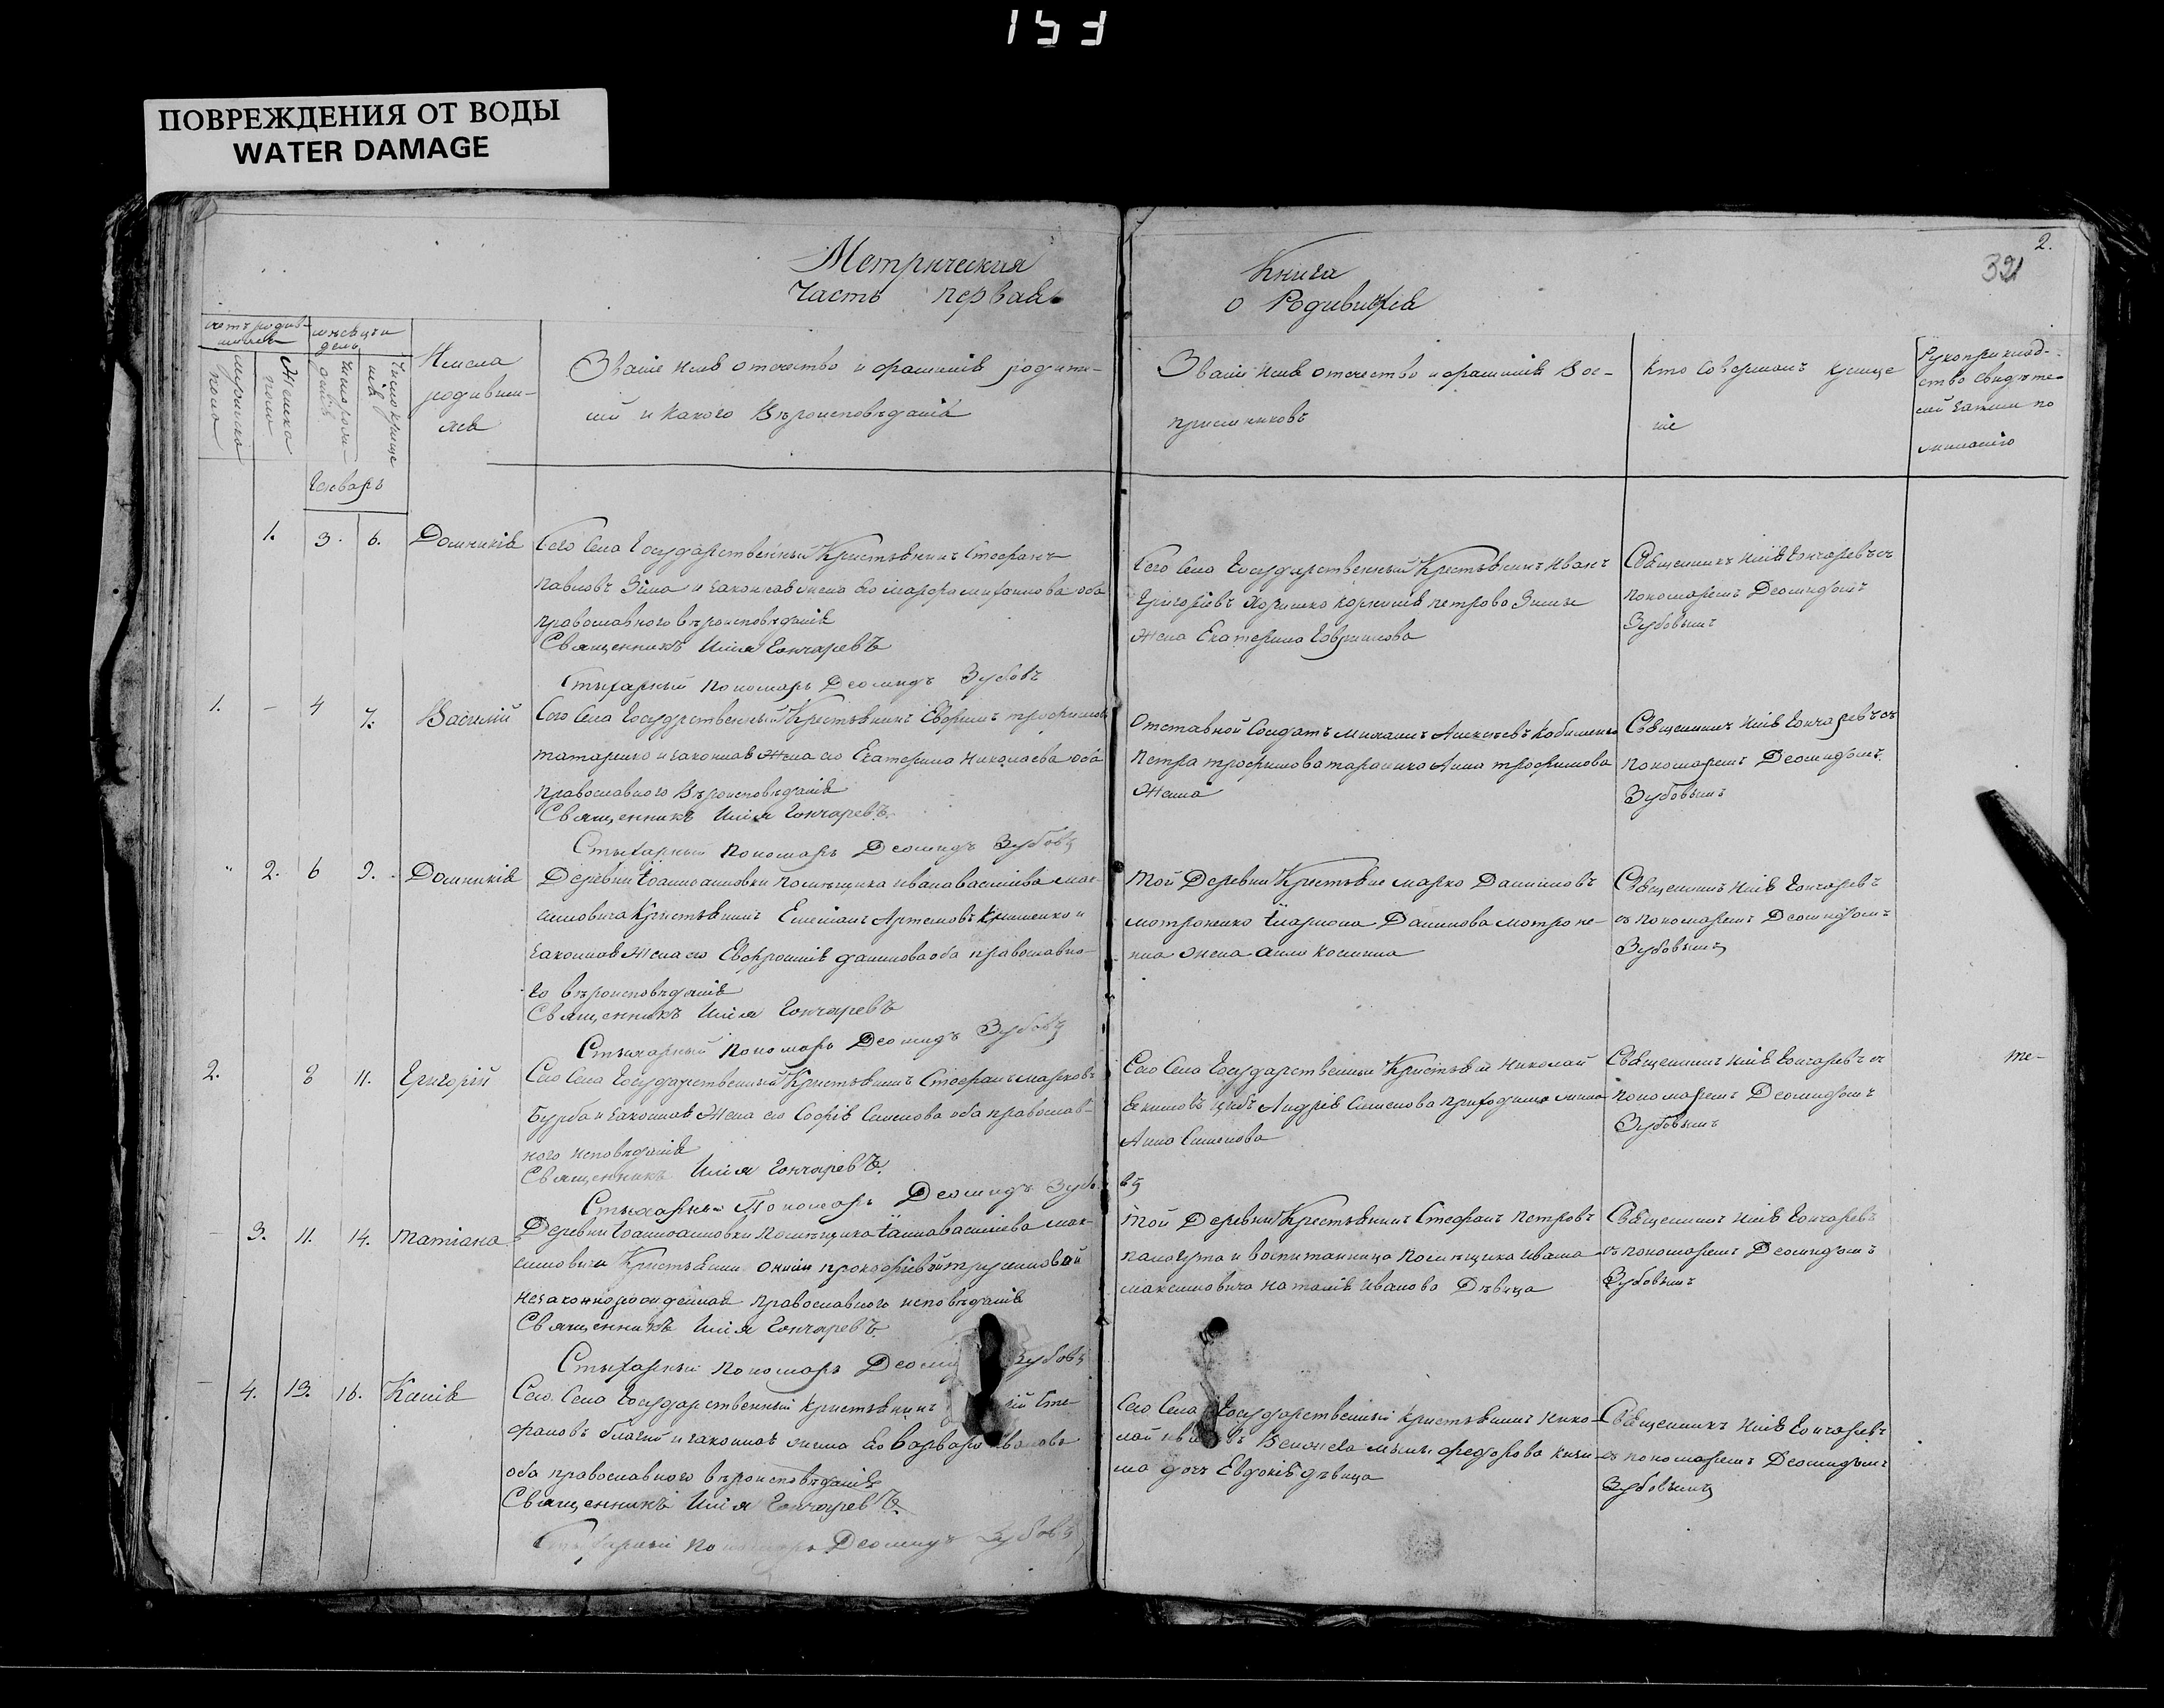 153
ПОВРЕЖДЕНИЯ ОТ ВОДЫ
WATER DAMAGE
2.
321
Метрическия Книга
Часть первая о Родившихся
мѣсяцъ и
день
Имена
родивши-
яся
Званіе имя отечество и фамилія родите-
лей и какого Вѣроисповѣданія
Званіе имя отечество и фамилія Вос-
пріемниковъ
Кто совершалъ креще
ніе
Рукоприклад-
ство свидѣте-
лей записи по
желанію
Генварь
1. 3. 6. Домникія
Сего Села Государственный Крестьянинъ Стефанъ
Павловъ Зима и законная жена его Марфа Михаилова оба
православного вѣроисповѣданія
Священникъ Илія Гончаревъ
Стихарный Пономарь Деомидъ Зубовъ
Сего Села Государственный Крестьянинъ Иванъ
Григоріевъ Корнилія Петрова Зимы
жена Екатерина Гавриилова
Священникъ Илія Гончаревъ съ
пономаремъ Деомидомъ
Зубовымъ
1. - 4 7. Василій
Сего Села Государственный Крестьянинъ Ефримъ Трофимовъ
Татаренко и законная Жена его Екатерина Николаева оба
православного Вѣроисповѣданія
Священникъ Илія Гончаревъ.
Стихарный Пономарь Деомидъ Зубовъ
Отставной Солдатъ Михаилъ Алексѣевъ
Петра Трофимова Анна Трофимова
Жена
Священникъ Илія Гончаревъ съ
пономаремъ Деомидомъ
Зубовымъ
" 2. 6 9. Домникія
Деревни Іоанноановки Помѣщика Ивана Василіева Мак-
симовича Крестьянинъ Емеліанъ Артемовъ и
законная Жена его Евфросинія Данилова оба православно-
го вѣроисповѣданія
Священникъ Илія Гончаревъ
Стихарный Пономарь Деомидъ Зубовъ
Той Деревни Крестьяне Марко Даниловъ
Мотроненко Данилова Мотроне-
нка жена
Священникъ Илія Гончаревъ
съ пономаремъ Деомидомъ
Зубовымъ
2. 8 11. Григорій
Сего Села Государственный Крестьянинъ Стефанъ Марковъ
Бурба и законная Жена его Софія Симеонова оба православ-
ного исповѣданія
Священникъ Илія Гончаревъ.
Стихарный Пономарь Деомидъ Зубо-
Сего Села Государственный Крестьянинъ Николай
Екимовъ Андрія Симеонова
Анна Симеонова
въ
Священникъ Илія Гончаревъ съ
пономаремъ Деомидомъ
Зубовымъ
те-
- 3. 11. 14. Татіана
Деревни Іоанноановки Помѣщика Іоанна Василіева Мак-
симовича Крестьянки Прокофіевой
незаконнорожденная православного исповѣданія
Священникъ Илія Гончаревъ
Стихарный Пономарь Деоми Зубовъ
Той Деревни Крестьянинъ Стефанъ Петровъ
и воспитанница Помѣщика Ивана
Максимовича Наталія Иванова Дѣвица
Священникъ Илія Гончаревъ
съ пономаремъ Деомидомъ
Зубовымъ
- 4. 13. 16. Ксенія
Сего Села Государственный Крестьянинъ ій Сте-
фановъ и законная жена его Варвара Иванова
оба православного вѣроисповѣданія
Священникъ Илія Гончаревъ.
Стихарный Пономарь Деомидъ Зубовъ
Сего Села Государственный Крестьянинъ Нико-
лай Федорова
дочь Евдокія дѣвица
Священникъ Илія Гончаревъ
съ пономаремъ Деомидомъ
Зубовымъ